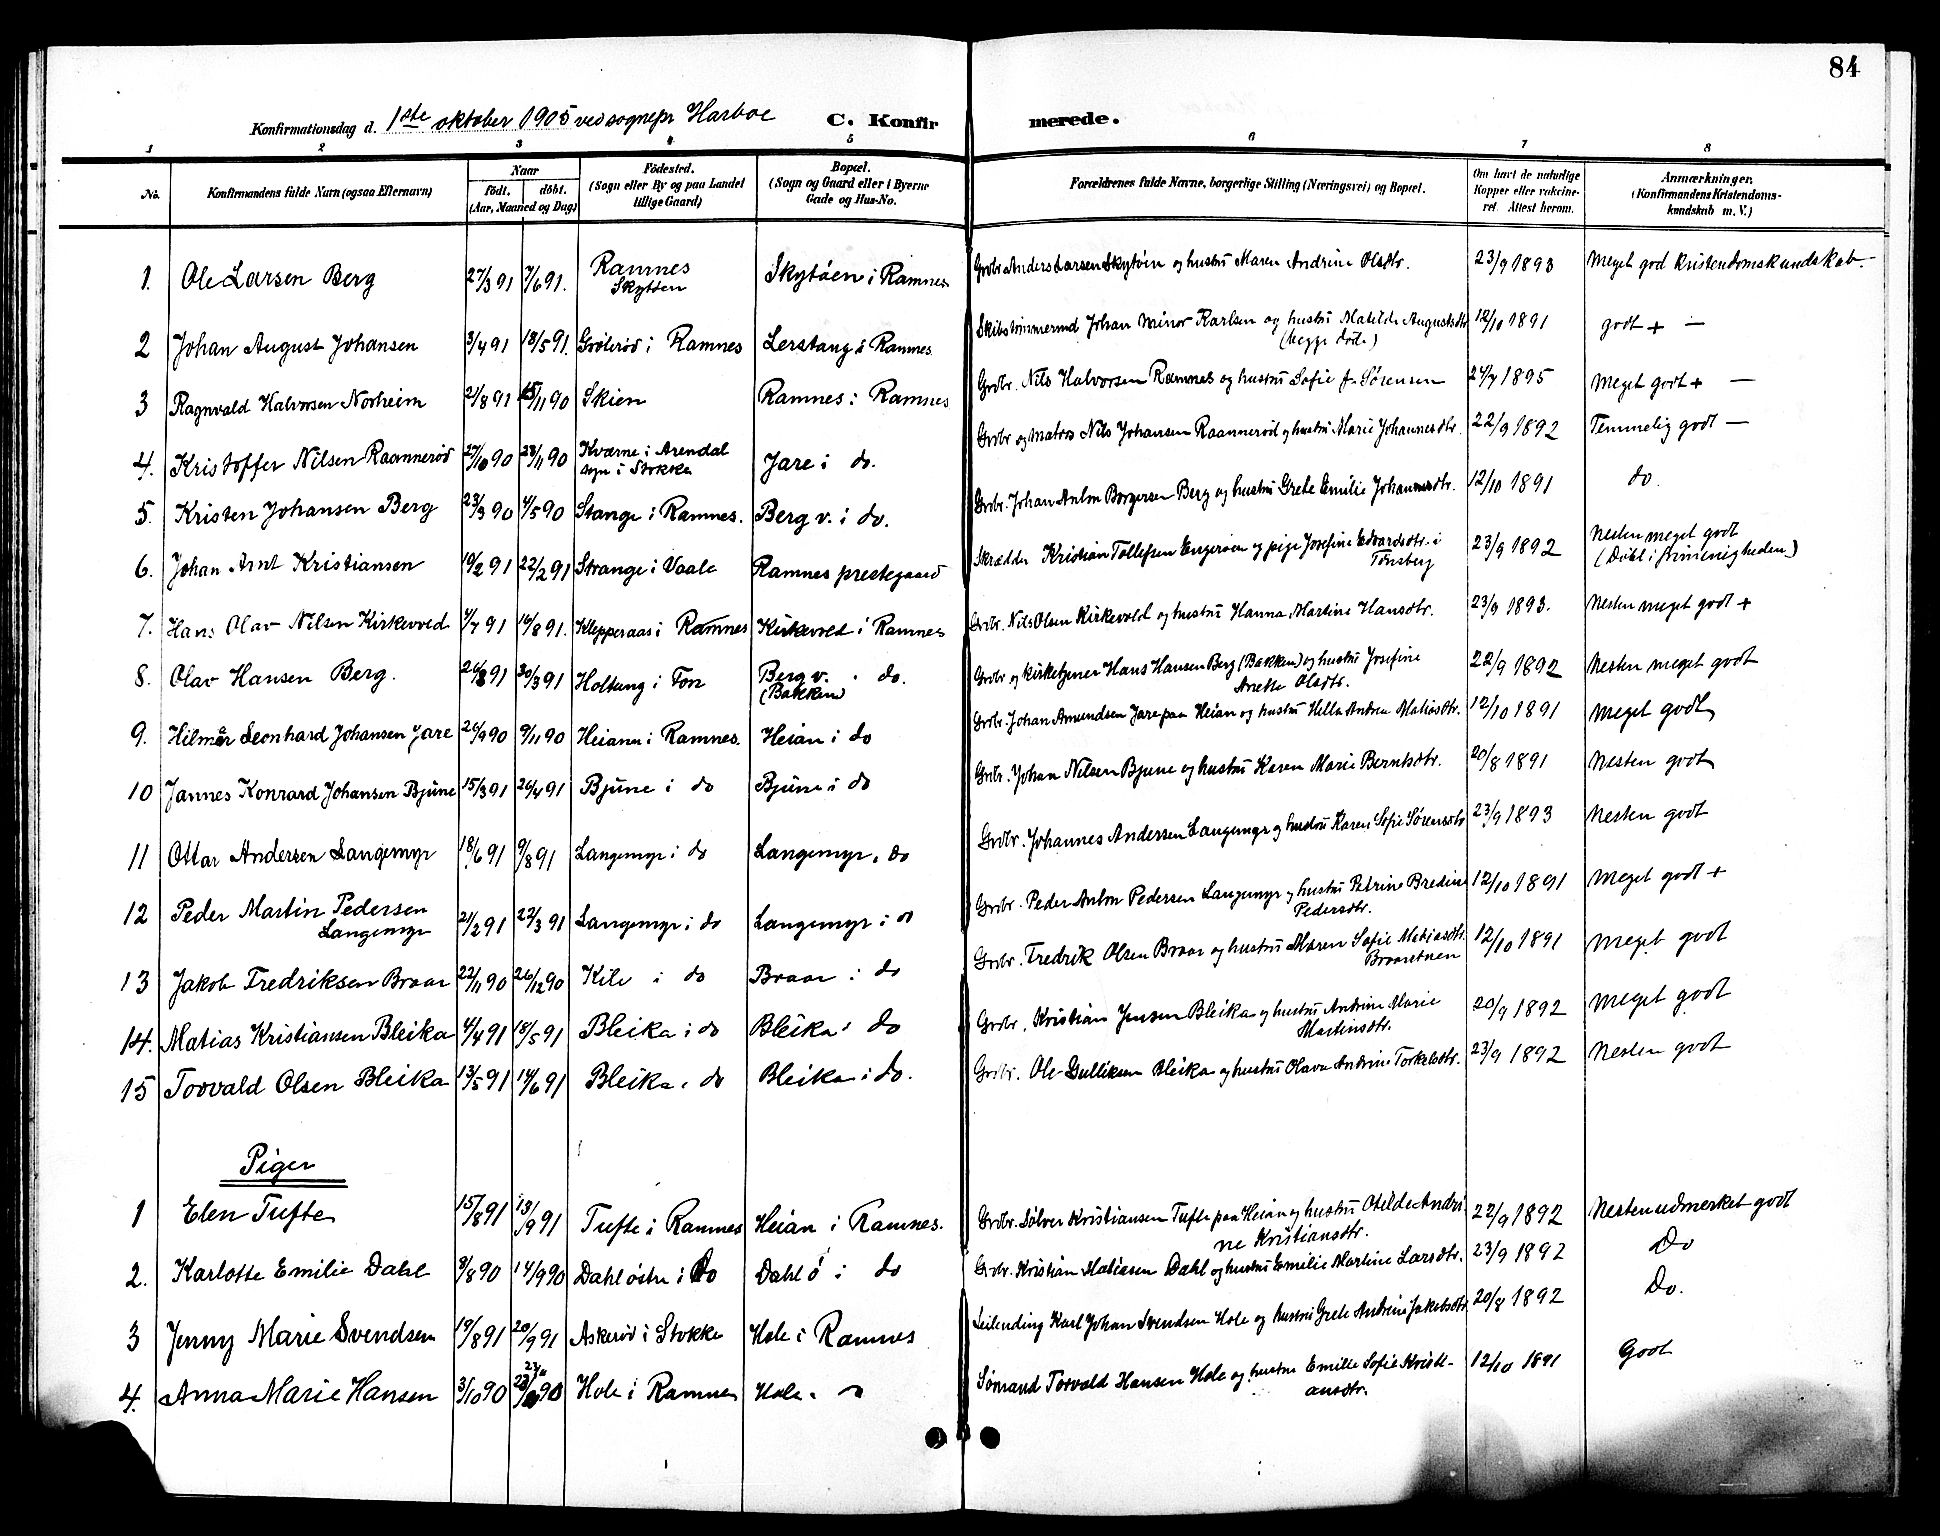 84
Konfirmationsdag d. 1ste oktober 1905 ved sognepr Harboe C. Konfirmerede.
1 2 3 4 5 6 7 8
No. Konfirmandens fulde Navn (ogsaa Efternavn) Naar født. døbt. (Aar, Maaned og Dag) Fødested. (Sogn eller By og paa Landet tillige Gaard) Bopæl. (Sogn og Gaard eller i Byerne Gade og Hus-No. Forældrenes fulde Navne, borgerlige Stilling (Næringsvei) og Bopæl. Om havt de naturlige Kopper eller vakcineret. Attest herom. Anmærkninger, (Konfirmandens Kristendomskundskab m. V.)
1. Ole Larsen Berg 27/3 91 7/6 91. Ramnes Skytøen Skytøen i Ramnes Grdbr Anders Larsen Skytøen og hustru Maren Andrine Olsdtr. 23/9 1893 Meget god Kristendomskundskab. —
2 Johan August Johansen 3/4 91 18/5 91. Grølerød i Ramnes Lerstang i Ramnes Skibstømmermd Johan Minor Karlsen og hustru Matilde Augustsdtr (begge døde) 12/10 1891 godt + —
3 Ragnvald Halvorsen Norheim 21/8 91 15/11 90 Skien Ramnes i Ramnes Grdbr. Nils Halvorsen Ramnes og hustru Sofie f. Sørensen 24/7 1895 Meget godt + —
4. Kristoffer Nilsen Raamnerød 27/10 90 23/11 90 Kværne i Arendal sgn i Stokke Jare i do. Grdbr og matros Nils Johansen Raamnerød og hustru Marie Johannesdtr. 22/9 1892 Temmelig godt —
5. Kristen Johansen Berg 23/3 90 4/5 90 Stange i Ramnes. Berg v. i do. Grdbr. Johan Anton Borgersen Berg og hustru Grete Emilie Johannesdtr. 12/10 1891 do.
6. Johan Arnt Kristiansen 19/2 91 22/2 91 Strange i Vaale Ramnes prestegaard Skrædder Kristian Tollefsen Engerøen og pige Josefine Edvardsdtr. i Tønsberg 23/9 1892 Nesten meget godt (Døbt i frimenigheden)
7. Hans Olav Nilsen Kirkevold 4/7 91 16/8 91. Klepperaas i Ramnes Kirkevold i Ramnes Grdbr. Nils Olsen Kirkevold og hustru Hanna Martine Hansdtr. 23/9 1893. Nesten meget godt +
8. Olav Hansen Berg. 30/3 91 Holtung i Føn Berg v. i do. (Bakken) Grdbr og kirketjener Hans Hansen Berg (Bakken) og hustru Josefine Anette Olsdtr. 22/9 1892 Nesten meget godt
9. Hilmar Leonhard Johansen Jare 26/9 90 9/11 90 Heian i Ramnes. Heian i do Grdbr. Johan Amundsen Jare paa Heian og hustru Hella Andrea Matiasdtr. 12/10 1891 Meget godt
10 Jannes Konrad Johansen Bjune 15/3 91 26/4 91 Bjune i do Bjune i do Grdbr. Johan Nilsen Bjune og hustru Karen Marie Berntsdtr. 20/8 1891 Nesten godt
11 Ottar Andersen Langemyr 18/6 91 9/8 91 Langemyr i do Langemyr i do Grdbr. Johannes Andersen Langemyr og hustru Karen Sofie Sørensdtr 23/9 1893 Nesten godt
12 Peder Martin Pedersen Langemyr 21/2 91 22/3 91 Langemyr i do Langemyr i do Grdbr. Peder Anton Pedersen Langemyr og hustru Petrine Bredine Pedersdtr. 12/10 1891 Meget godt +
13 Jakob Fredriksen Braar 22/11 90 26/12 90 Kile i do Braar i do Grdbr. Fredrik Olsen Braar og hustru Maren Sofie Matiasdtr. Braaretuen 12/10 1891 Meget godt
14. Matias Kristiansen Bleika 4/4 91 18/5 91 Bleika i do Bleika i do Grdbr. Kristian Jensen Bleika og hustru Andrine Marie Martinsdtr. 20/9 1892 Meget godt
15 Torvald Olsen Bleika 13/5 91 14/6 91 Bleika i do Bleika i do. Grdbr. Ole Gulliksen Bleika og hustru Olava Andrine Torkelsdtr. 23/9 1892 Nesten godt
Piger
1 Elen Tufte 15/8 91 13/9 91 Tufte i Ramnes Heian i Ramnes. Grdbr. Sølver Kristiansen Tufte paa Heian og hustru Otelde Andrine Kristiansdtr. 22/9 1892 Nesten udmerket godt
2. Karlotte Emilie Dahl 9/8 90 14/9 90 Dahl østre i Do Dahl ø i do Grdbr. Kristian Matiasen Dahl og hustru Emilie Martine Larsdtr. 23/9 1892 Do
3 Jenny Marie Svendsen 19/8 91 20/9 91 Askerød i Stokke Hole i Ramnes Leilending Karl Johan Svendsen Hole og hustru Grete Andrine Jakobsdtr. 20/8 1892 Do.
4. Anna Marie Hansen 3/10 90 Hole i Ramnes Hole i do Sømand Torvald Hansen Hole og hustru Emilie Sofie Kristiansdtr. 12/10 1891 Godt